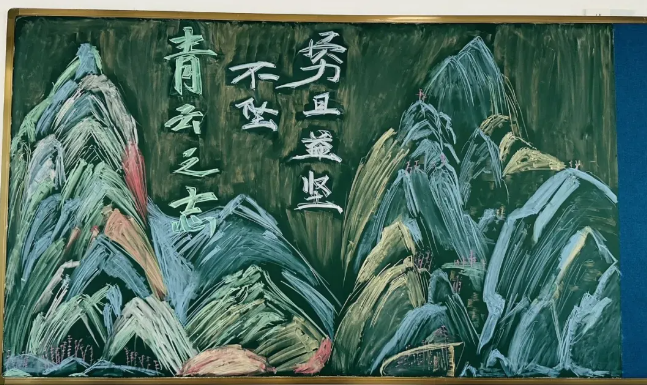 穷且益坚
不坠
青云之志